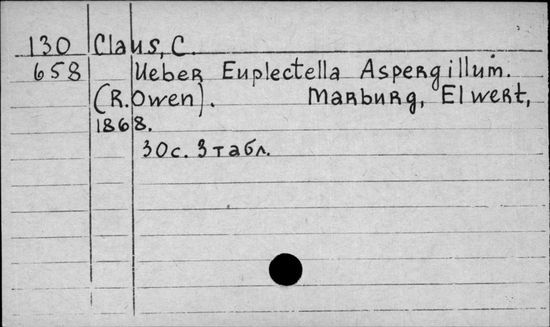 130 Claus, C.
658 Ueber Euplectella Aspergillum.
(R. Owen). Marburg, Elwert,
1868.
30 с. 3 табл.